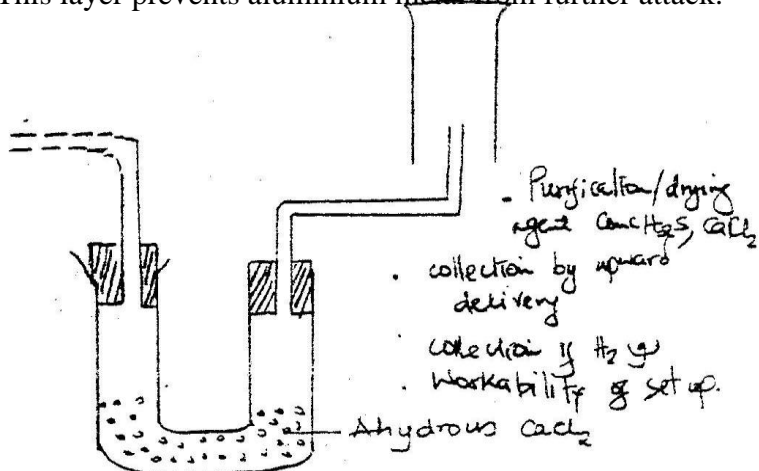 This layer prevents aluminium metal from further attack.
- Purification/drying
agent Conc H2S, CaCl2
. collection by upward
delivery
collection of H2 (g)
. Workability of set up.
Ahydrous CaCl2